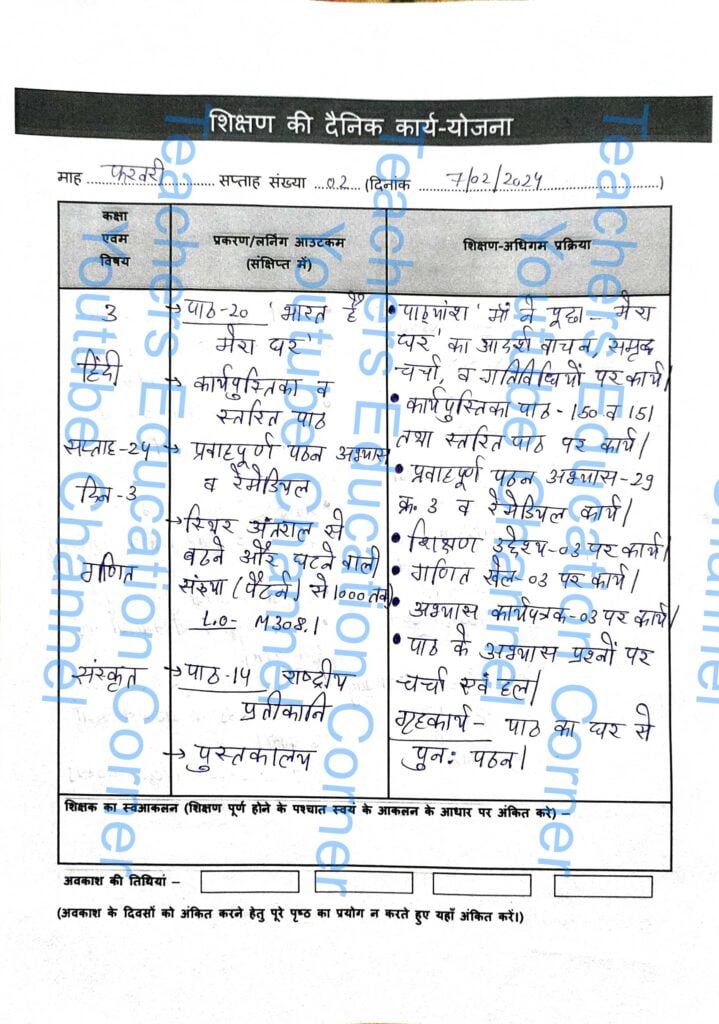 शिक्षण की दैनिक कार्य-योजना
माह फरवरी सप्ताह संख्या 02 (दिनांक 7/02/2024)
कक्षा
एवम
विषय
प्रकरण/लर्निंग आउटकम
(संक्षिप्त में)
शिक्षण-अधिगम प्रक्रिया
3
हिंदी
सप्ताह-24
दिन-3
गणित
संस्कृत
→ पाठ-20 'भारत है
मेरा घर'
→ कार्यपुस्तिका व
स्तरित पाठ
→ प्रवाहपूर्ण पठन अभ्यास
व रेमेडियल
→ स्थिर अंतराल से
बढने और घटने वाली
संख्या (पैटर्न) से 1000 तक)
L.O- M308.1
→ पाठ-14 राष्ट्रीय
प्रतीकानि
→ पुस्तकालय
• पाठ्यांश 'माँ ने पूछा - मेरा
घर' का आदर्श वाचन, समृद्ध
चर्चा, व गतिविधियों पर कार्य।
• कार्यपुस्तिका पाठ - 150 व 151
तथा स्तरित पाठ पर कार्य।
• प्रवाहपूर्ण पठन अभ्यास-29
क्र. 3 व रेमेडियल कार्य।
• शिक्षण उद्देश्य-03 पर कार्य।
• गणित खेल-03 पर कार्य।
• अभ्यास कार्यपत्रक-03 पर कार्य।
• पाठ के अभ्यास प्रश्नों पर
चर्चा एवं हल।
गृहकार्य - पाठ का घर से
पुनः पठन।
शिक्षक का स्वआकलन (शिक्षण पूर्ण होने के पश्चात स्वयं के आकलन के आधार पर अंकित करे) –
अवकाश की तिथियां –
(अवकाश के दिवसों को अंकित करने हेतु पूरे पृष्ठ का प्रयोग न करते हुए यहाँ अंकित करें।)
Teachers Education Corner
Youtube Channel
Teachers Education Corner
Youtube Channel
Teachers Education Corner
Youtube Channel